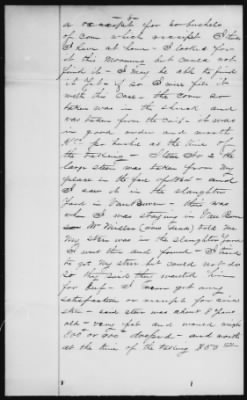 a receipt for 200 bushels
of corn which receipt I think
I have at home - I looked for
it this morning but could not
find it - I may be able to find
it yet - if so I will file it
with this case - The corn so
taken was in the shuck and
was taken from the crib - it was
in good order and worth
per bushel at the time of
the taking - Item No 2 the
large steer was taken from my
place in the and
I saw it in the slaughter
yard in Van Buren - this was
when I was staying in Van Buren
Mr Miller (now dead) told me
my steer was in the slaughter yard
I went there and found I tried
to get my steer but could not do
so they said they wanted him
for beef - I never got any
satisfaction or receipt for said
steer - said steer was about 8 years
old - very fat and would weigh
800 or 900 dressed - and worth
at the time of the taking $50